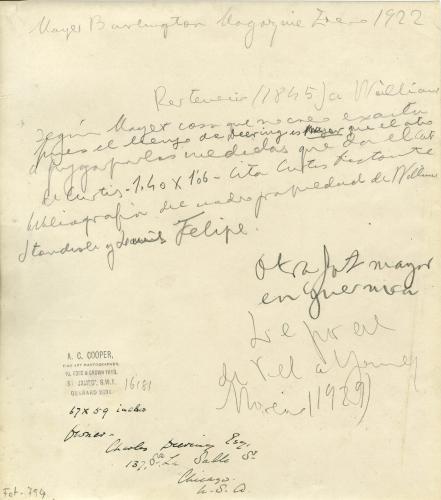 Mayer Burlington Magazine Enero 1922
Perteneció (1845) a William
según Mayer cosa que no creo exacta
pues el lienzo de Deering es mayor que el otro
a juzgar por las medidas que da el Cat.
de Curtis - 1,40 x 1'06 - Cita Curtis bastante
bibliografía del cuadro propiedad de William
Standish y Louis Felipe.
Otra fot mayor
en Guernica
A. C. COOPER,
FINE ART PHOTOGRAPHER,
ROSE & CROWN YARD,
ST JAMES', S.W.1.
GERRARD
16181
67 x 59 inches
Owner -
Charles Deering Esq,
137, So. La Salle St
Chicago.
U.S.A.
(1929)
Fot-794